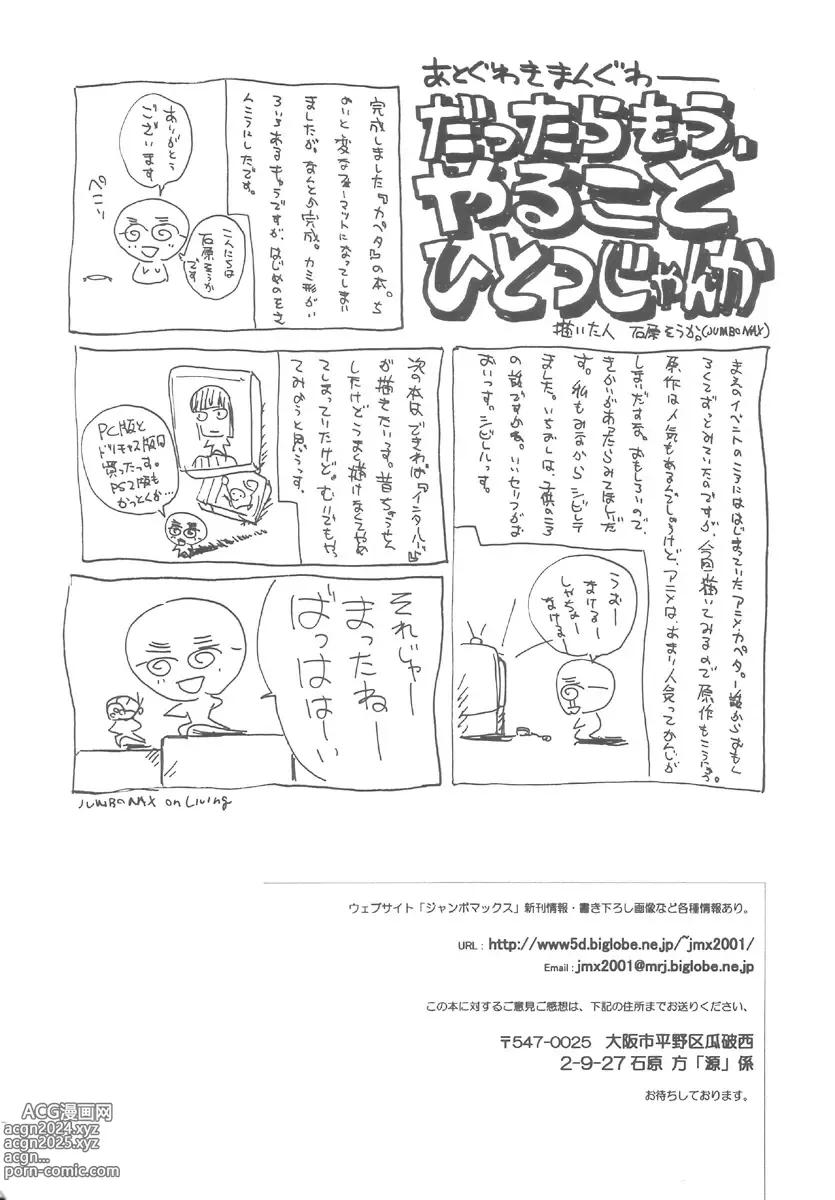 あとぐわきまんぐわ――
だったらもう、
やること
ひとつじゃんか
描いた人 石原そうか。(JUMBOMAX)
完成しました『カペタ』の本。ち
ょいと変なフォーマットになってしまい
ましたが、なんとか完成。カミ形がい
ろいろあるキャラですが、はじめのをさ
んこうにしたです。
ありがとう
ございます
こんにちは
石原そうか
です
ぺこーり
まえのイベントのころにははじまっていたアニメ・カペタ。一話からおもし
ろくてずっとみていたのですが、今回描いてみるので原作もこうにゅう。
原作は人気もあるんでしょうけど、アニメは、あまり人気ってかんじが
しまいだすな。おもしろいので、
きかいがあったらみてほしいだ
す。私もみながらシビレテ
ました。いちおしは、子供のころ
の話ですかね。いいセリフがお
おいっす。シビレルっす。
うおー
まけるなー
しゃちょー
まけるなー
次の本は、できれば『インタルード』
が描きたいっす。昔ちょうせん
したけどうまく描けなくてやめ
てしまっていたけど。むりでもやっ
てみようと思うっす。
PC版と
ドリキャス版は
買ったっす。
PS2版も
かっとくか…
それじゃー
まったねー
ばっははーい
JUMBOMAX on Living
ウェブサイト「ジャンボマックス」新刊情報・書き下ろし画像など各種情報あり。
URL : http://www5d.biglobe.ne.jp/~jmx2001/
Email : jmx2001@mrj.biglobe.ne.jp
この本に対するご意見ご感想は、下記の住所までお送りください、
〒547-0025 大阪市平野区瓜破西
2-9-27 石原 方「源」係
お待ちしております。
ACG漫画网
acgn2024.xyz
acgn2025.xyz
acgn...
porn-comic.com